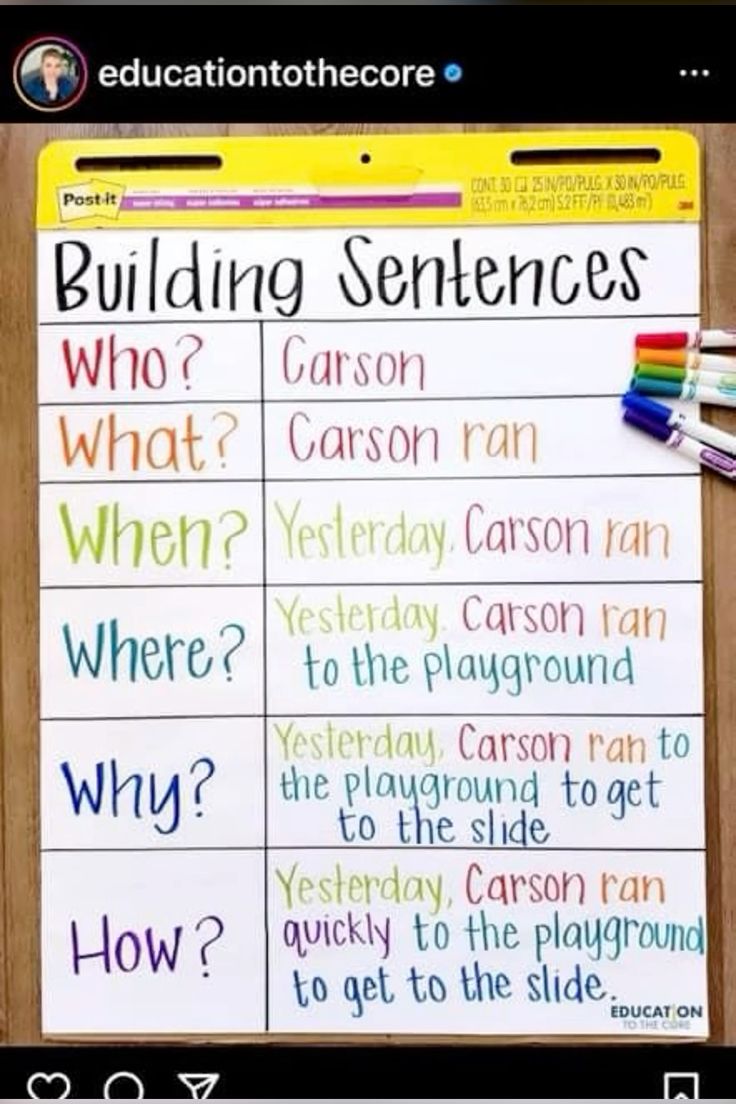 educationtothecore
Post-it
CONT. 30 25 IN/PO/PULG. X 30 IN/PO/PULG.
(63,5 cm x 76,2 cm) 5.2 FT²/PI² (0,483 m²)
3M
Building Sentences
Who?
Carson
What?
Carson ran
When?
Yesterday, Carson ran
Where?
Yesterday, Carson ran
to the playground
Why?
Yesterday, Carson ran to
the playground to get
to the slide
How?
Yesterday, Carson ran
quickly to the playground
to get to the slide.
EDUCATION
TO THE CORE